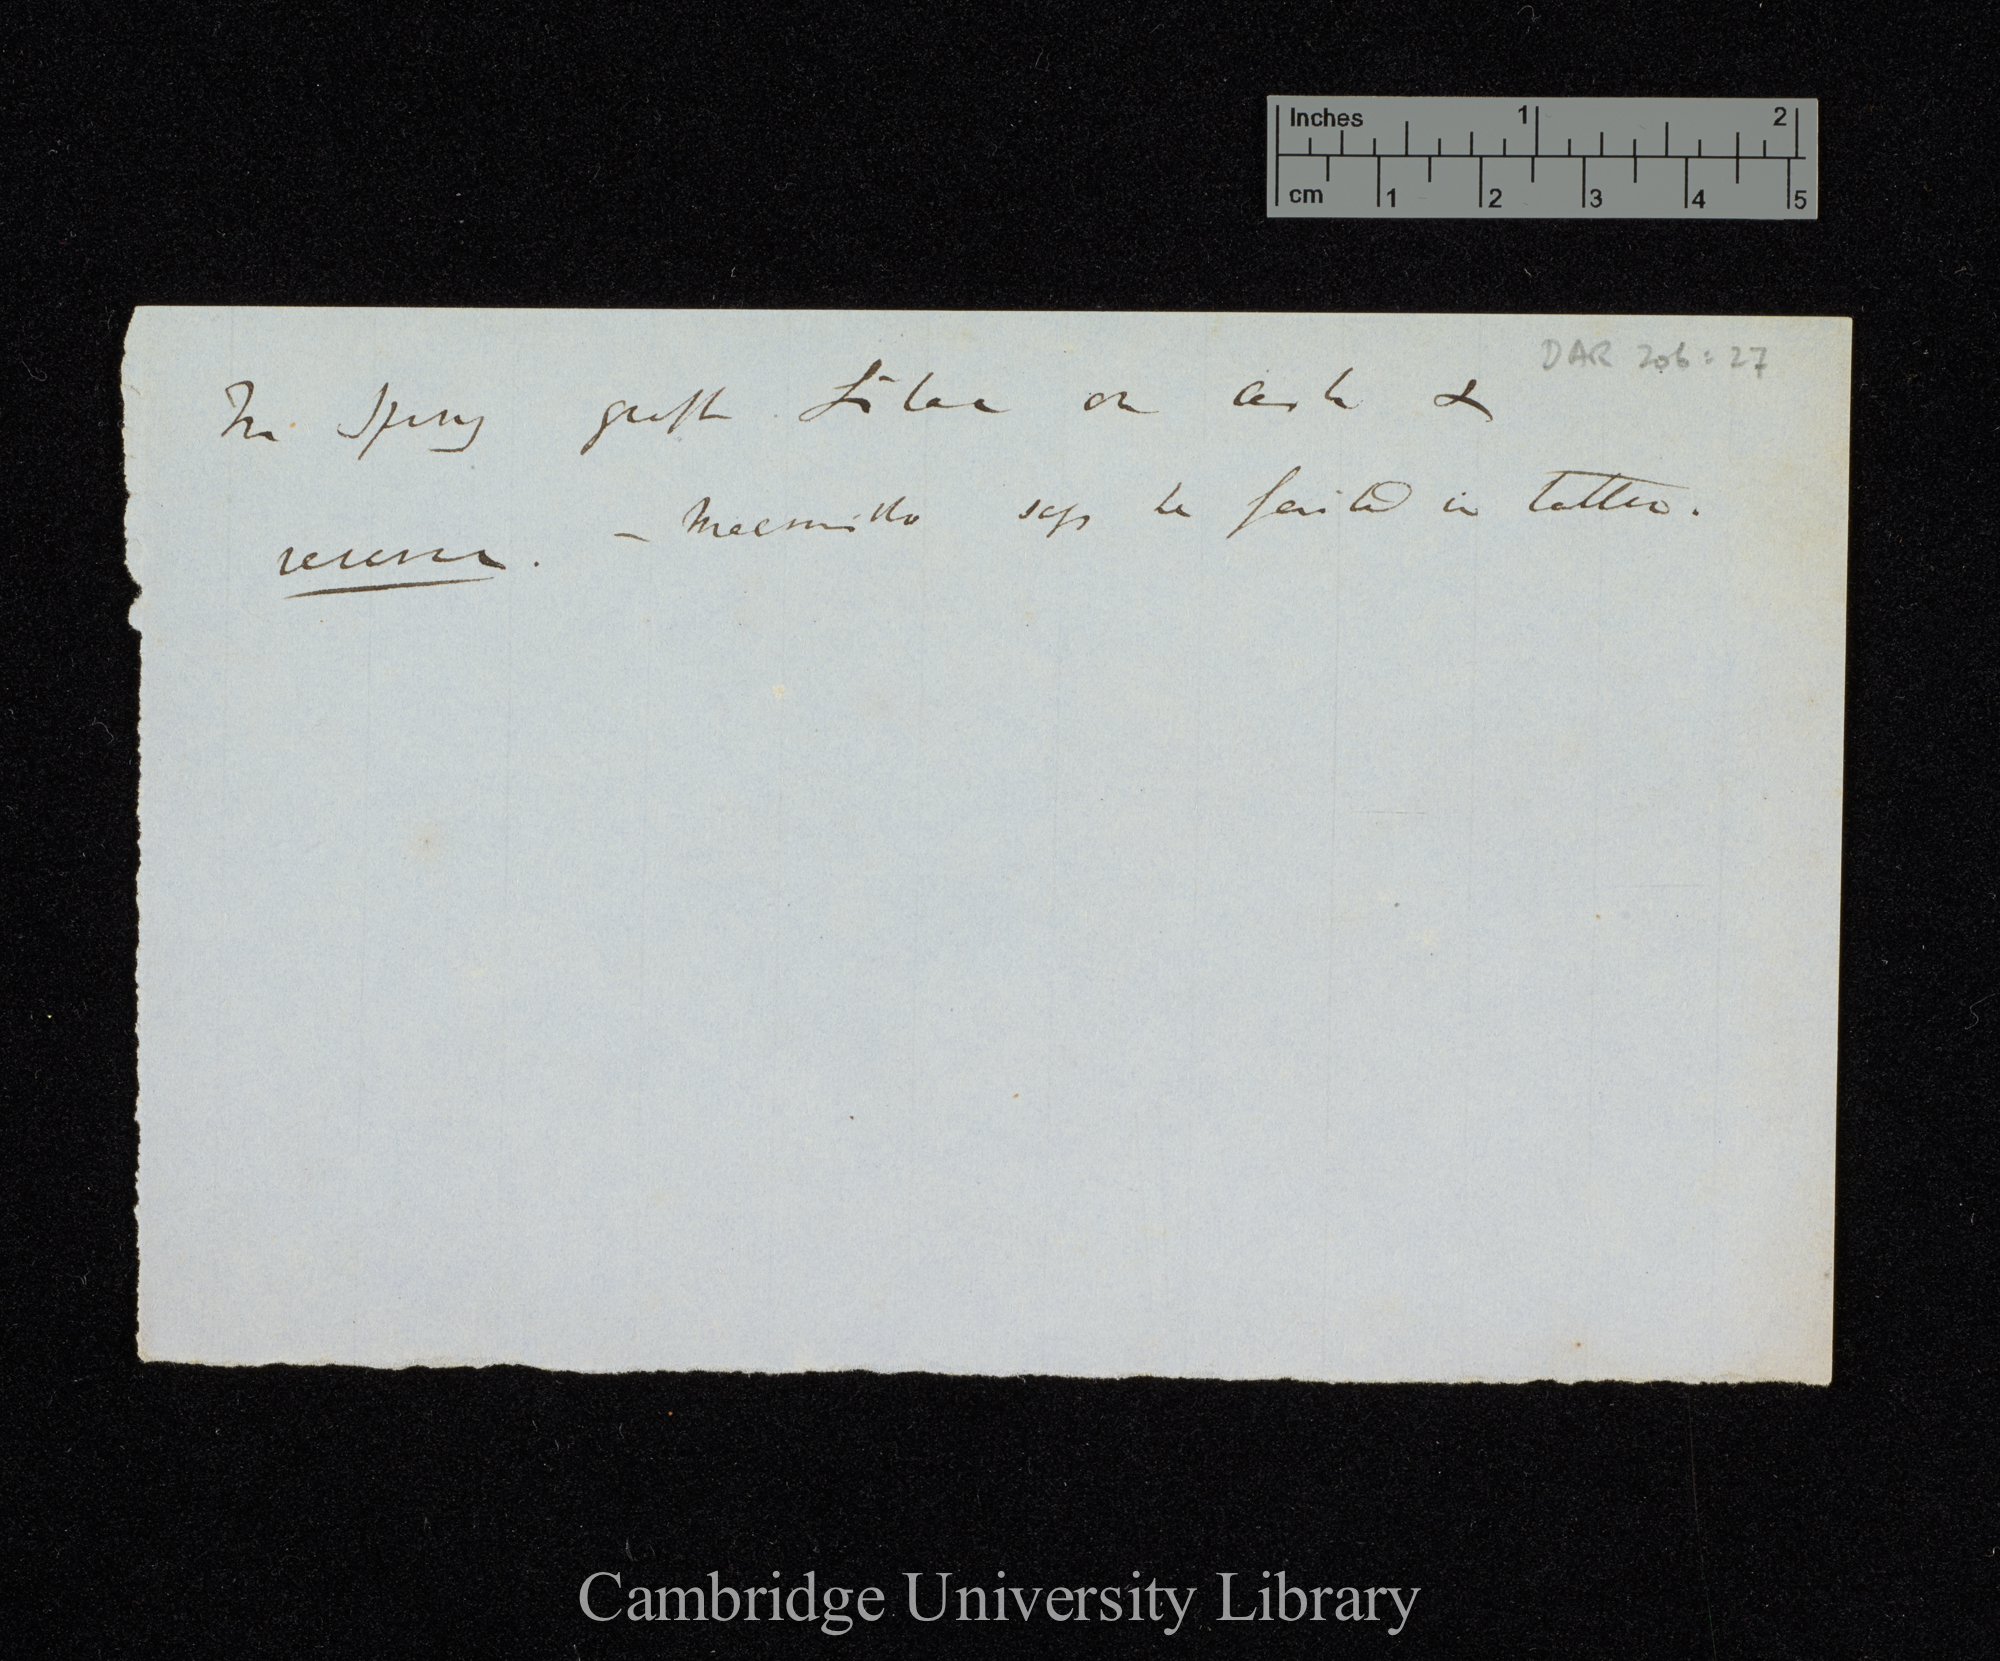 Inches 1 2
cm 1 2 3 4 5
DAR 206:27
In Spring graft Lilac on ash &
reverse. — Macmillo says he failed in latter.
Cambridge University Library